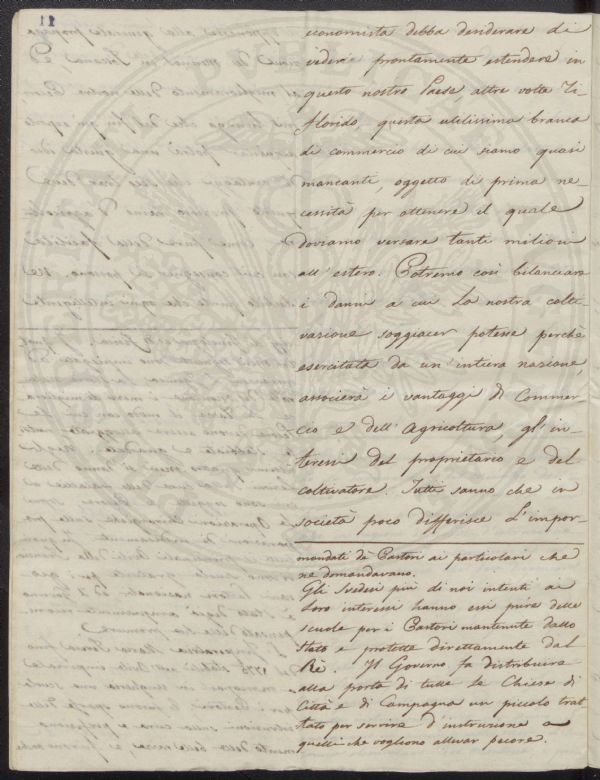 11
economista debba desiderare di
vedere prontamente estendere in
questo nostro Paese, altre volte sì
florido, questa utilissima branca
di commercio di cui siamo quasi
mancanti, oggetto di prima ne-
cessità per ottenere il quale
doviamo versare tanti milioni
all'estero. Potremo così bilanciare
i danni a cui la nostra colti
vazione soggiacer potesse perchè
esercitata da un'intiera nazione,
associerà i vantaggi di Commer
cio e dell'Agricoltura, gl'in-
teressi del proprietario e del
coltivatore. Tutti sanno che in
società poco differisce l'impor-
mandati de Pastori ai particolari che
ne domandavano.
Gli Svedesi più di noi intenti ai
loro interessi hanno essi pure delle
scuole per i Pastori mantenute dallo
stato e protette direttamente dal
Rè. Il Governo fa distribuire
alla porta di tutte le Chiese di
Città e di Campagna un piccolo trat
tato per servire d'instruzione a
quelli che vogliono allevar pecore.